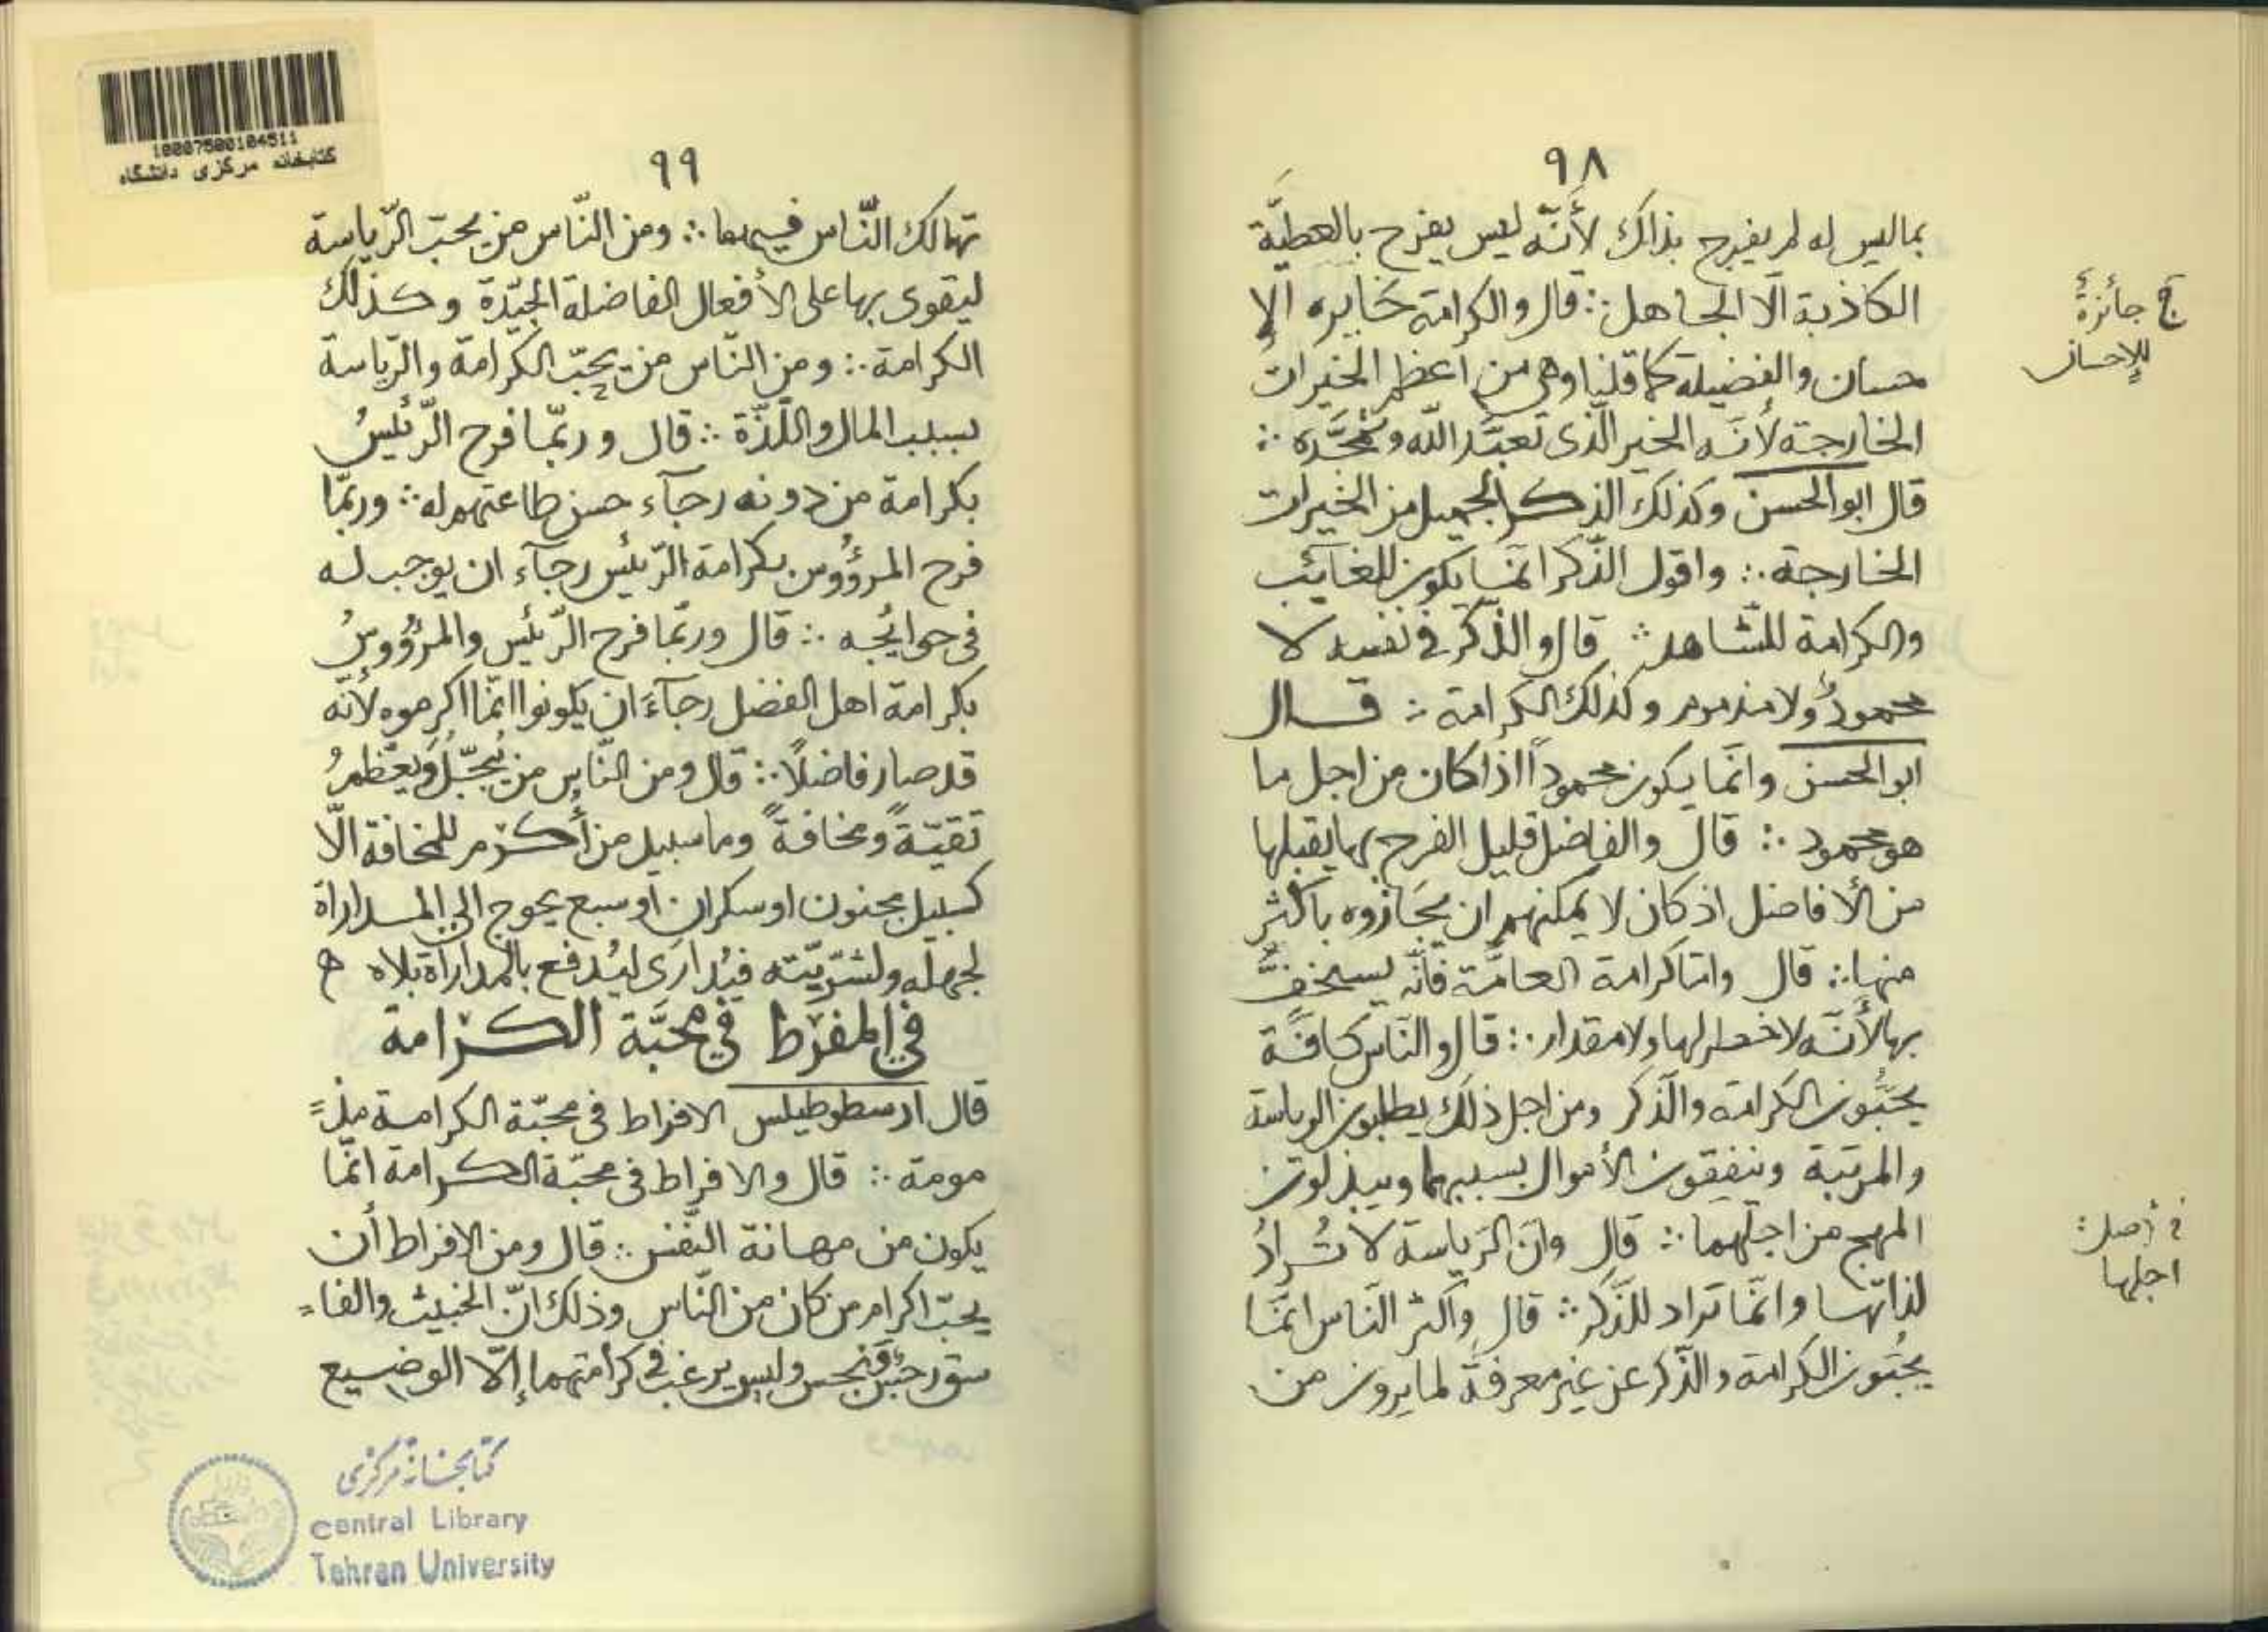 ٩٨
بماليس له لم يفرح بذلك لأنّه ليس يفرح بالعطيّة
الكاذبة الّا الجاهل ∴ قال والكرامة خايره الإ
حسان والفضيلة كما قلنا وهى من اعظم الخيرات
الخارجة لأنّه الخير الّذى نعبّد اللّه ونمجّده ∴
قال ابو الحسن وكذلك الذكر الجميل من الخيرات
الخارجة ∴ واقول الذّكر انّما يكون للغائب
والكرامة للشّاهد ∴ قال والذّكر فى نفسه لا
محمودٌ ولا مذموم وكذلك الكرامة ∴ قال
ابو الحسن وانّما يكون محموداً اذا كان من اجل ما
هو محمود ∴ قال والفاضل قليل الفرح بها يقبلها
من الأفاضل اذ كان لا يمكنهم ان يجازوه باكثر
منها ∴ قال وامّا كرامة العامّة فانّه يستخفُّ
بها لأنّه لا خطر لها ولا مقدار ∴ قال والنّاس كافّة
يحبّون الكرامة والذّكر ومن اجل ذلك يطلبون الرياسة
والمرتبة وينفقون الأموال بسببهما ويبذلون
المهج من اجلهما ∴ قال وانّ الرّياسة لا تُرادُ
لذاتها وانّما تراد للذّكر ∴ قال واكثر النّاس انّما
يحبّون الكرامة والذّكر عن غير معرفةٍ لما يرون من
جائزةُ
للإحسان
فى أصل:
اجلها
٩٩
تهالك النّاس فيهما ∴ ومن النّاس من يحبّ الرّياسة
ليقوى بها على الأفعال الفاضلة الجيّدة وكذلك
الكرامة ∴ ومن النّاس من يحبّ الكرامة والرّياسة
بسبب المال واللّذّة ∴ قال وربّما فرح الرّئيسُ
بكرامة من دونه رجآء حسن طاعتهم له ∴ وربّما
فرح المرؤُوس بكرامة الرّئيس رجآء ان يوجب له
فى حوائجه ∴ قال وربّما فرح الرّئيس والمرؤُوسُ
بكرامة اهل الفضل رجآءَ ان يكونوا انّما اكرموه لأنّه
قد صار فاضلًا ∴ قال ومن النّاس من يُبجّلُ ويُعظّمُ
تقيّةً ومخافةً وما سبيل من أكرم للمخافة الّا
كسبيل مجنون او سكران او سبع يحوج الى المداراة
لجهله ولشرّيّته فيُدارَى ليُدفع بالمداراة بلاه ه
في المفرط في محبَّة الكرامة
قال ارسطوطيلس الافراط فى محبّة الكرامة مذ=
مومة ∴ قال والافراط فى محبّة الكرامة انّما
يكون من مهانة النّفس ∴ قال ومن الإفراط أن
يحبّ اكرام من كان من النّاس وذلك انّ الخبيث والفا=
سق رجسٌ ونجس وليس يرغب فى كرامتهما إلّا الوضيع
10007500104511
کتابخانه مرکزی دانشگاه
کتابخانهٔ مرکزی
Central Library
Tehran University